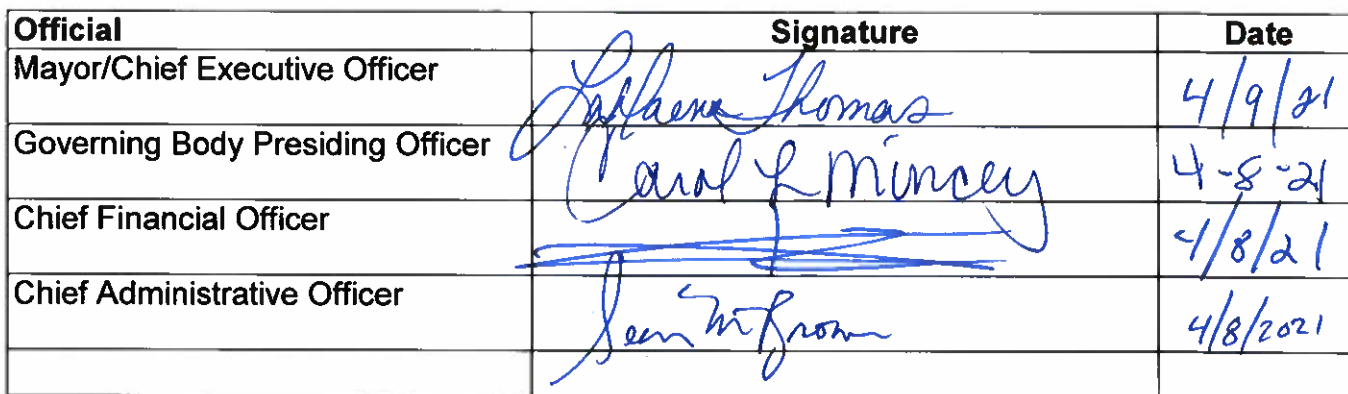 Official Signature Date
Mayor/Chief Executive Officer Thomas 4/9/21
Governing Body Presiding Officer Carol L Mincey 4-8-21
Chief Financial Officer 4/8/21
Chief Administrative Officer Sean M Brown 4/8/2021